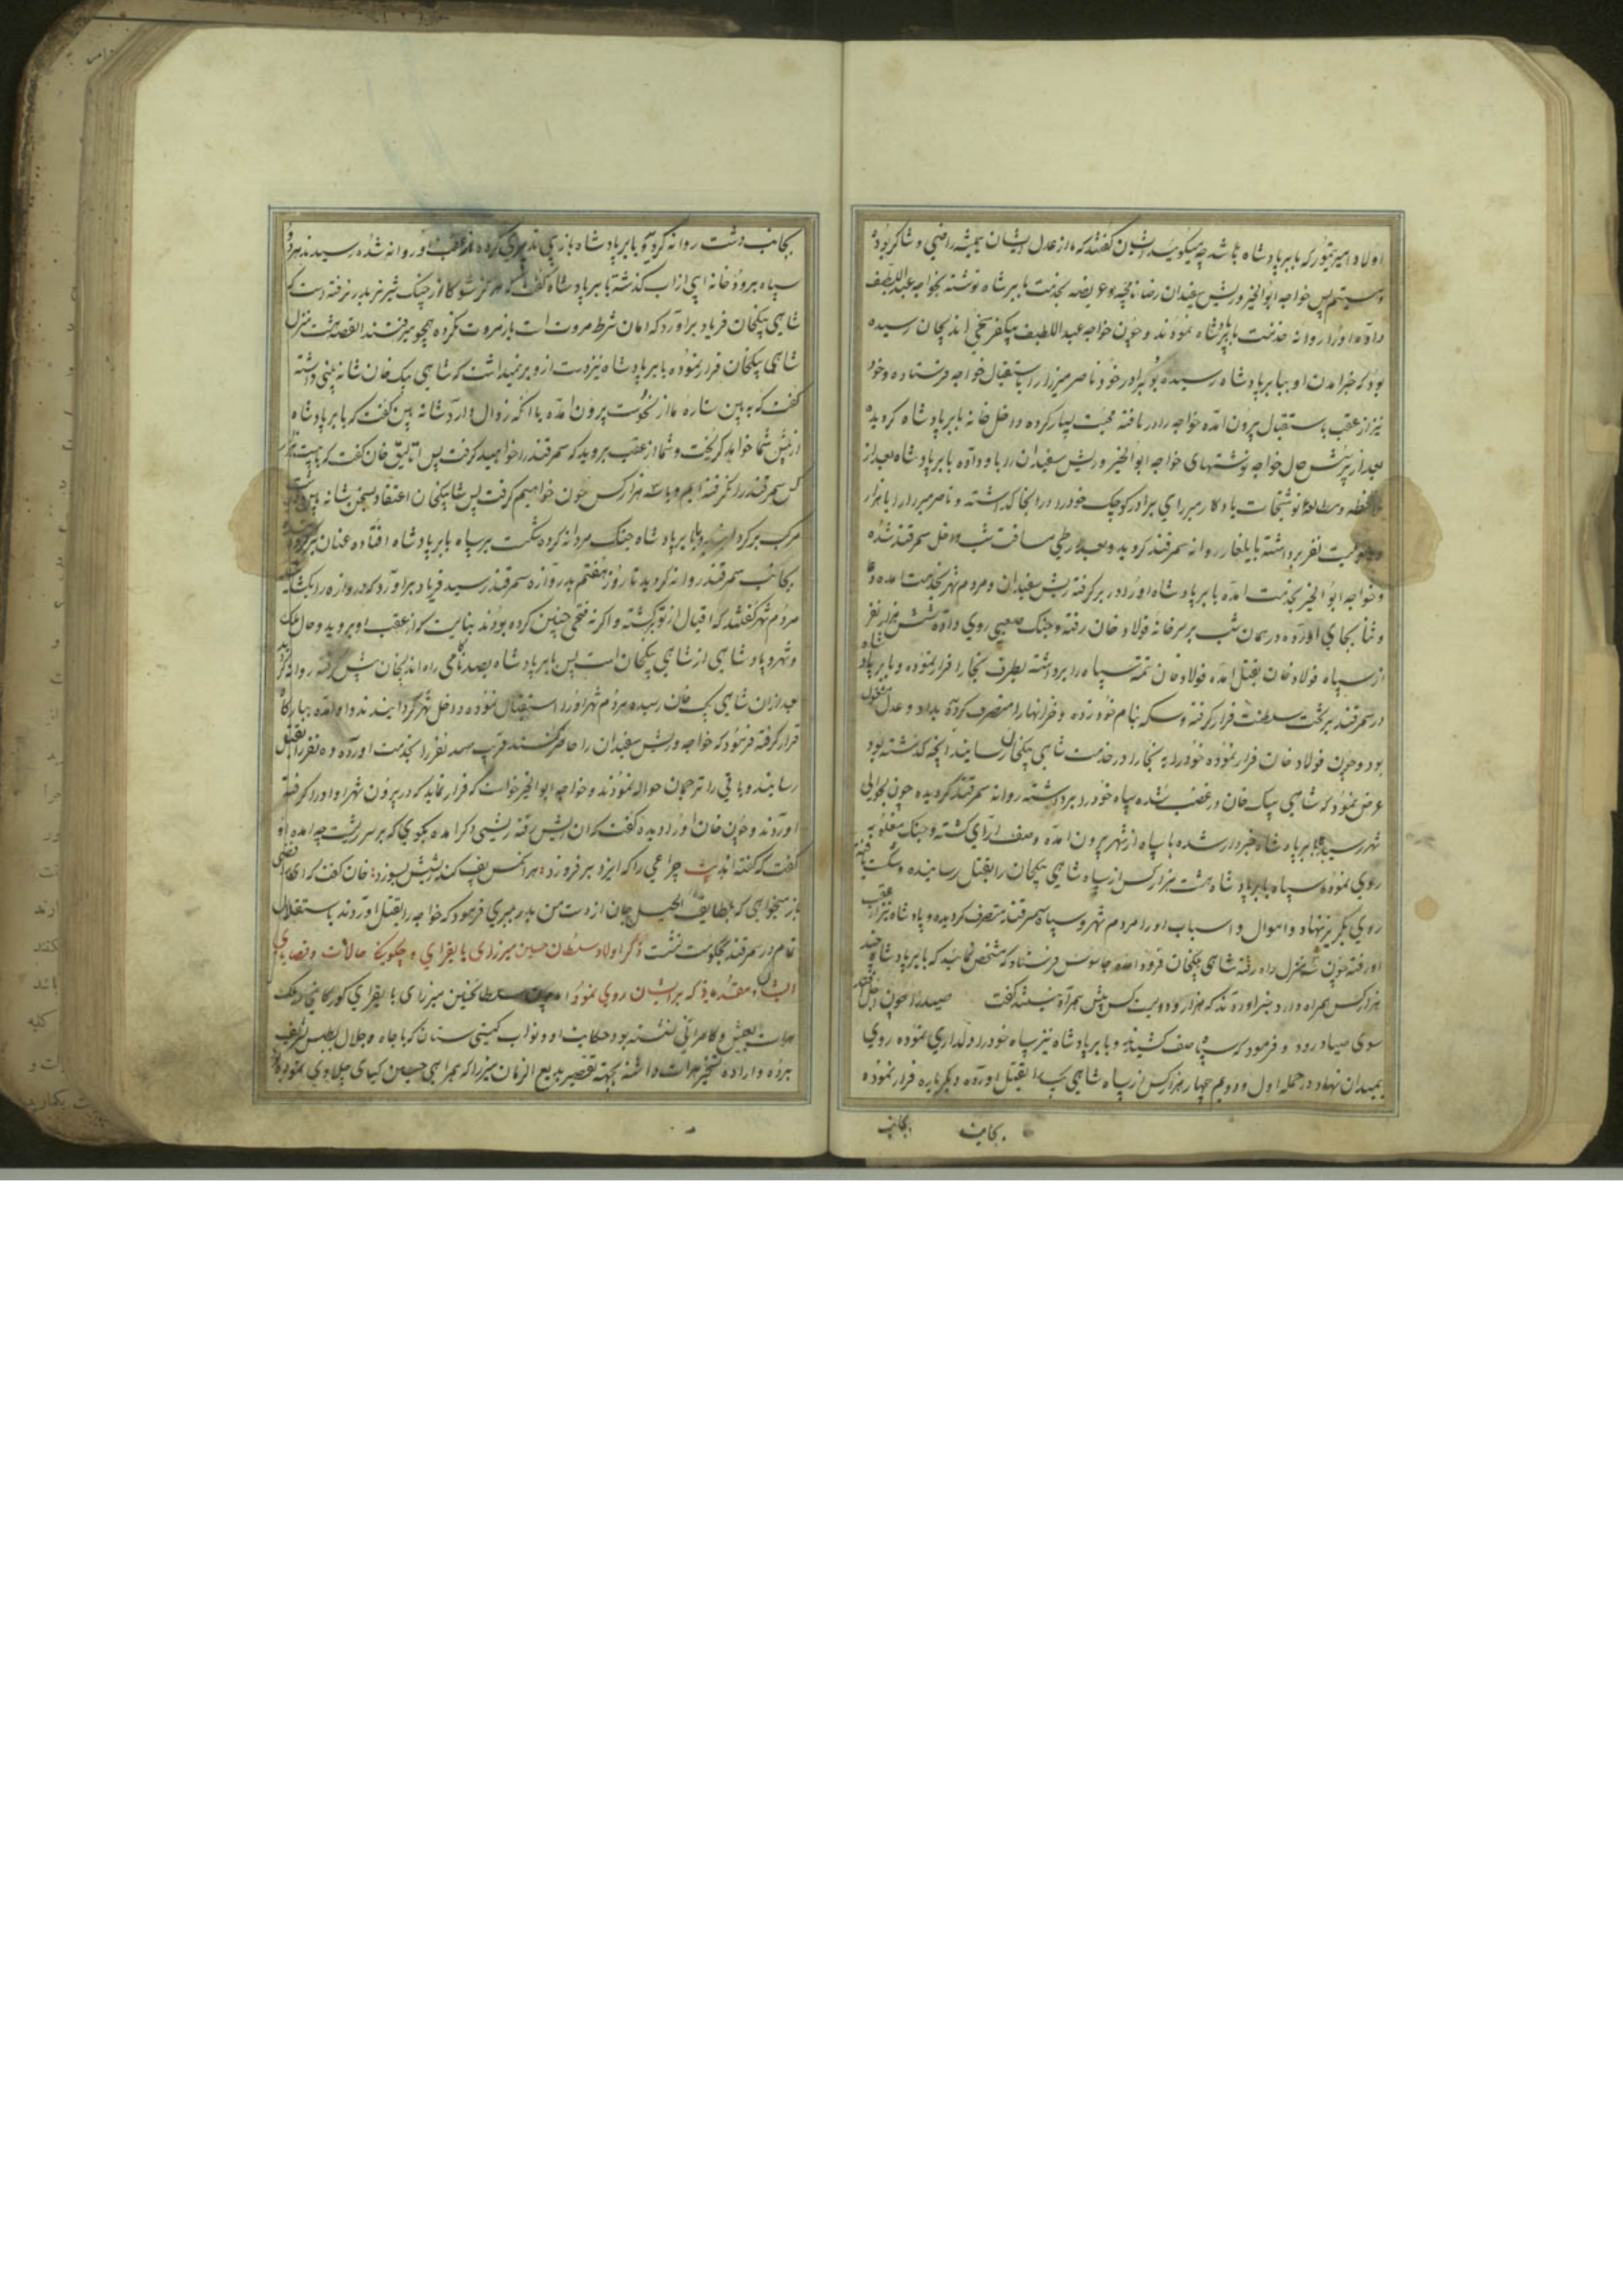 اولاد امیر تیمور که بابر پادشاه باشد چه میگوئید ایشان گفتند که ما از عدل ایشان همیشه راضی و شاکر بوده
و هستیم پس خواجه ابوالخیر و ریش سفیدان رضا نامچه و عریضه بخدمت بابر شاه نوشته بخواجه عبداللطیف
داده او را روانه خدمت بابر پادشاه نمودند و چون خواجه عبداللطیف بیکفرسخی اندیجان رسیده
بود که خبر آمدن او ببابر پادشاه رسیده برادر خود ناصر میرزا را باستقبال خواجه فرستاده و خود
نیز از عقب باستقبال بیرون آمده خواجه را دریافته محبت بسیار کرده داخل خانه بابر پادشاه گردیده
بعد از پرسش حال خواجه نوشتهای خواجه ابوالخیر و ریش سفیدان را باو داده بابر پادشاه بعد از
ملاحظه و مطالعه نوشتجات یادگار میرزای برادر کوچک خود را در آنجا گذاشته و ناصر میرزا را با هزار
و دویست نفر برداشته بایلغار روانه سمرقند گردید و بعد از طی مسافت شب داخل سمرقند شده
و خواجه ابوالخیر بخدمت آمده بابر پادشاه او را در بر گرفته ریش سفیدان و مردم شهر بخدمت آمده دعا
و ثنا بجای آورده در همان شب بر سر خانه فولاد خان رفته و جنک صعبی روی داده شش هزار نفر
از سپاه فولاد خان بقتل آمده فولاد خان تتمه سپاه را برداشته بطرف بخارا فرار نموده و بابر پادشاه
در سمرقند بر تخت سلطنت قرار گرفته و سکه بنام خود زده و خزانها را متصرف گردیده بداد و عدل مشغول
بود و چون فولاد خان فرار نموده خود را به بخارا در خدمت شاهی بیکخان رسانید آنچه گذشته بود
عرض نمود که شاهی بیک خان در غضب شده سپاه خود را برداشته روانه سمرقند گردیده چون بحوالی
شهر رسید بابر پادشاه خبردار شده با سپاه از شهر بیرون آمده و صف آرای گشته و جنک مغلوبه
روی نموده سپاه بابر پادشاه هشت هزار کس از سپاه شاهی بیکخان را بقتل رسانیده و شکست یافته
روی بگریز نهاد و اموال و اسباب او را مردم شهر و سپاه سمرقند متصرف گردیده و پادشاه نیز از عقب
او رفته چون شش منزل راه رفته شاهی بیکخان فرود آمده جاسوس فرستاد که مشخص نماید که بابر پادشاه چند
هزار کس همراه دارد خبر آوردند که هزار و دویست کس بیش همراه نیستند گفت صید را چون اجل آید
سوی صیاد رود و فرمود که سپاه صف کشیدند و بابر پادشاه نیز سپاه خود را دلداری نموده روی
بمیدان نهاد و در حمله اول و دویم چهار هزار کس از سپاه شاهی بیک را بقتل آورده دیگر باره فرار نموده
بجانب
بجانب دشت روانه گردید و بابر پادشاه باز پی تدبیری کرده از عقب او روانه شده رسیدند هر دو
سپاه برودخانه آبی از آب گذشته بابر پادشاه گفت هرگز شکار از چنک شیر نر بدر نرفته دست که
شاهی بیکخان فریاد برآورد که امان شرط مروت است باز مروت نکرده همچو میرفتند القصه هشت منزل
شاهی بیکخان فرار نموده بابر پادشاه نیز دست از او بر نمیداشت که شاهی بیک خان شانه بینی داشته
گفت که به بین ستاره ما از نحوست بیرون آمده یا آنکه زوال دارد شانه بین گفت که بابر پادشاه
از پیش شما خواهد گریخت و شما از عقب بروید که سمرقند را خواهید گرفت پس اتالیق خان گفت که با بیست هزار
کس سمرقند را نگرفته ایم و با سه هزار کس چون خواهیم گرفت پس شاهی بیکخان اعتقاد بسخن شانه بین داشت
مرکب برگردانیده با بابر پادشاه جنک مردانه کرده شکست بر سپاه بابر پادشاه افتاده عنان برگردانیده
بجانب سمرقند روانه گردید تا روز هفتم بدروازه سمرقند رسید فریاد برآورد که دروازه را بگشایید
مردم شهر گفتند که اقبال از تو برگشته و اگر نه فتحی چنین کرده بودند بنایست که از عقب او بروید و حال ملک
و شهر و پادشاهی از شاهی بیکخان است پس بابر پادشاه بصد ناکامی راه اندیجان پیش گرفته روانه گردید
بعد از آن شاهی بیک خان رسیده مردم شهر او را استقبال نموده داخل شهر گردانیدند و او آمده ببارگاه
قرار گرفته فرمود که خواجه و ریش سفیدان را حاضر کنند قریب سیصد نفر را بخدمت آورده و ده نفر را بقتل
رسانیدند و باقی را ترجمان حواله نمودند و خواجه ابوالخیر خواست که فرار نماید که در بیرون شهر او را گرفته
آوردند و چون خان او را دیده گفت که آن ریش فتنه ریشی دگر آمده بگوی که بر سر ریشت چه آمده او
گفت که گفته اند بیت چراغی را که ایزد بر فروزد هر آنکس پف کند ریشش بسوزد خان گفت که ای
باز میخواهی که بلطایف الحیل جان از دست من بدر میبری فرمود که خواجه را بقتل آوردند باستقلال
تمام در سمرقند بحکومت نشست ذکر اولاد سلطان حسین میرزای بایقرای و چگونگی حالات و قضایای
ایشان و مقدمه که بر ایشان روی نمود اما چون سلطان حسین میرزای بایقرای گورکانی در ملک
هرات بعیش و کامرانی نشسته بود حکایت او و نواب گیتی ستان که با جاه و جلال بطبس تشریف
برده و اراده تسخیر هرات داشته بجهة تقصیر بدیع الزمان میرزا که همراهی حسین کیای چلاوی نموده